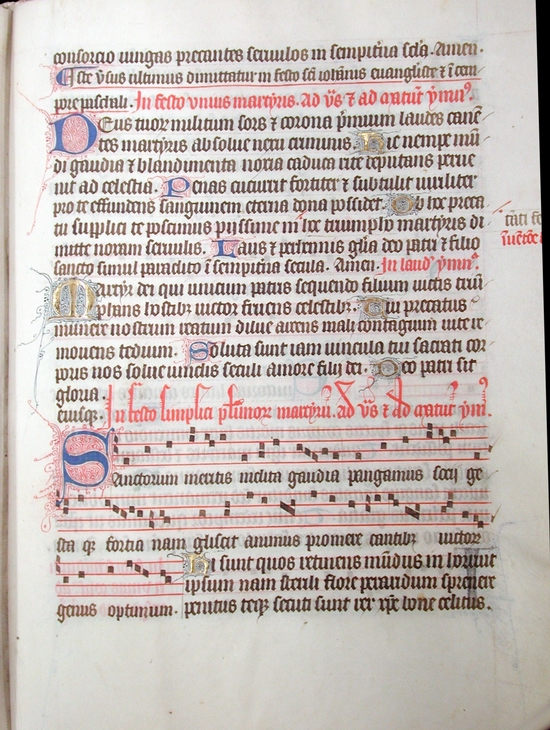 consorcio iungas precantes servulos in sempiterna secula. Amen.
Iste versus ultimus dimittatur in festo sancti iohannis euangeliste & in tem
pore paschali. In festo unius martyris. Ad vs & ad matut ymnus.
Deus tuorum militum sors & corona premium laudes canen
tes martyris absolve nexu criminis. Hic nempe mun
di gaudia & blandimenta noxia caduca rite deputans perve
nit ad celestia. Penas cucurrit fortiter & subtulit viriliter
pro te effundens sanguinem eterna dona possidet. Ob hoc preca
tu supplici te poscimus piissime in hoc triumpho martyris di
mitte noxam servulis. Laus & perhennis gloria deo patri & filio
sancto simul paraclito in sempiterna secula. Amen. In laud ymnus.
Martyr dei qui unicum patris sequendo filium victis triu
mphans hostibus victor fruens celestibus. Tui precatus
munere nostrum reatum dilue arcens mali contagium vite re
movens tedium. Soluta sunt iam vincula tui sacrati cor
poris nos solve vinclis seculi amore filii dei. Deo patri sit
gloria.
eiusque. In festo simplici plurimorum martyrum. Ad vs & ad matut ym.
Sanctorum meritis inclita gaudia pangamus socii ge
sta que fortia nam gliscit animus promere cantibus victorum
Hi sunt quos retinens mundus inhorruit
ipsum nam sterili flore peraridum sprevere
genus optimum. penitus teque secuti sunt rex christe bone celitus.